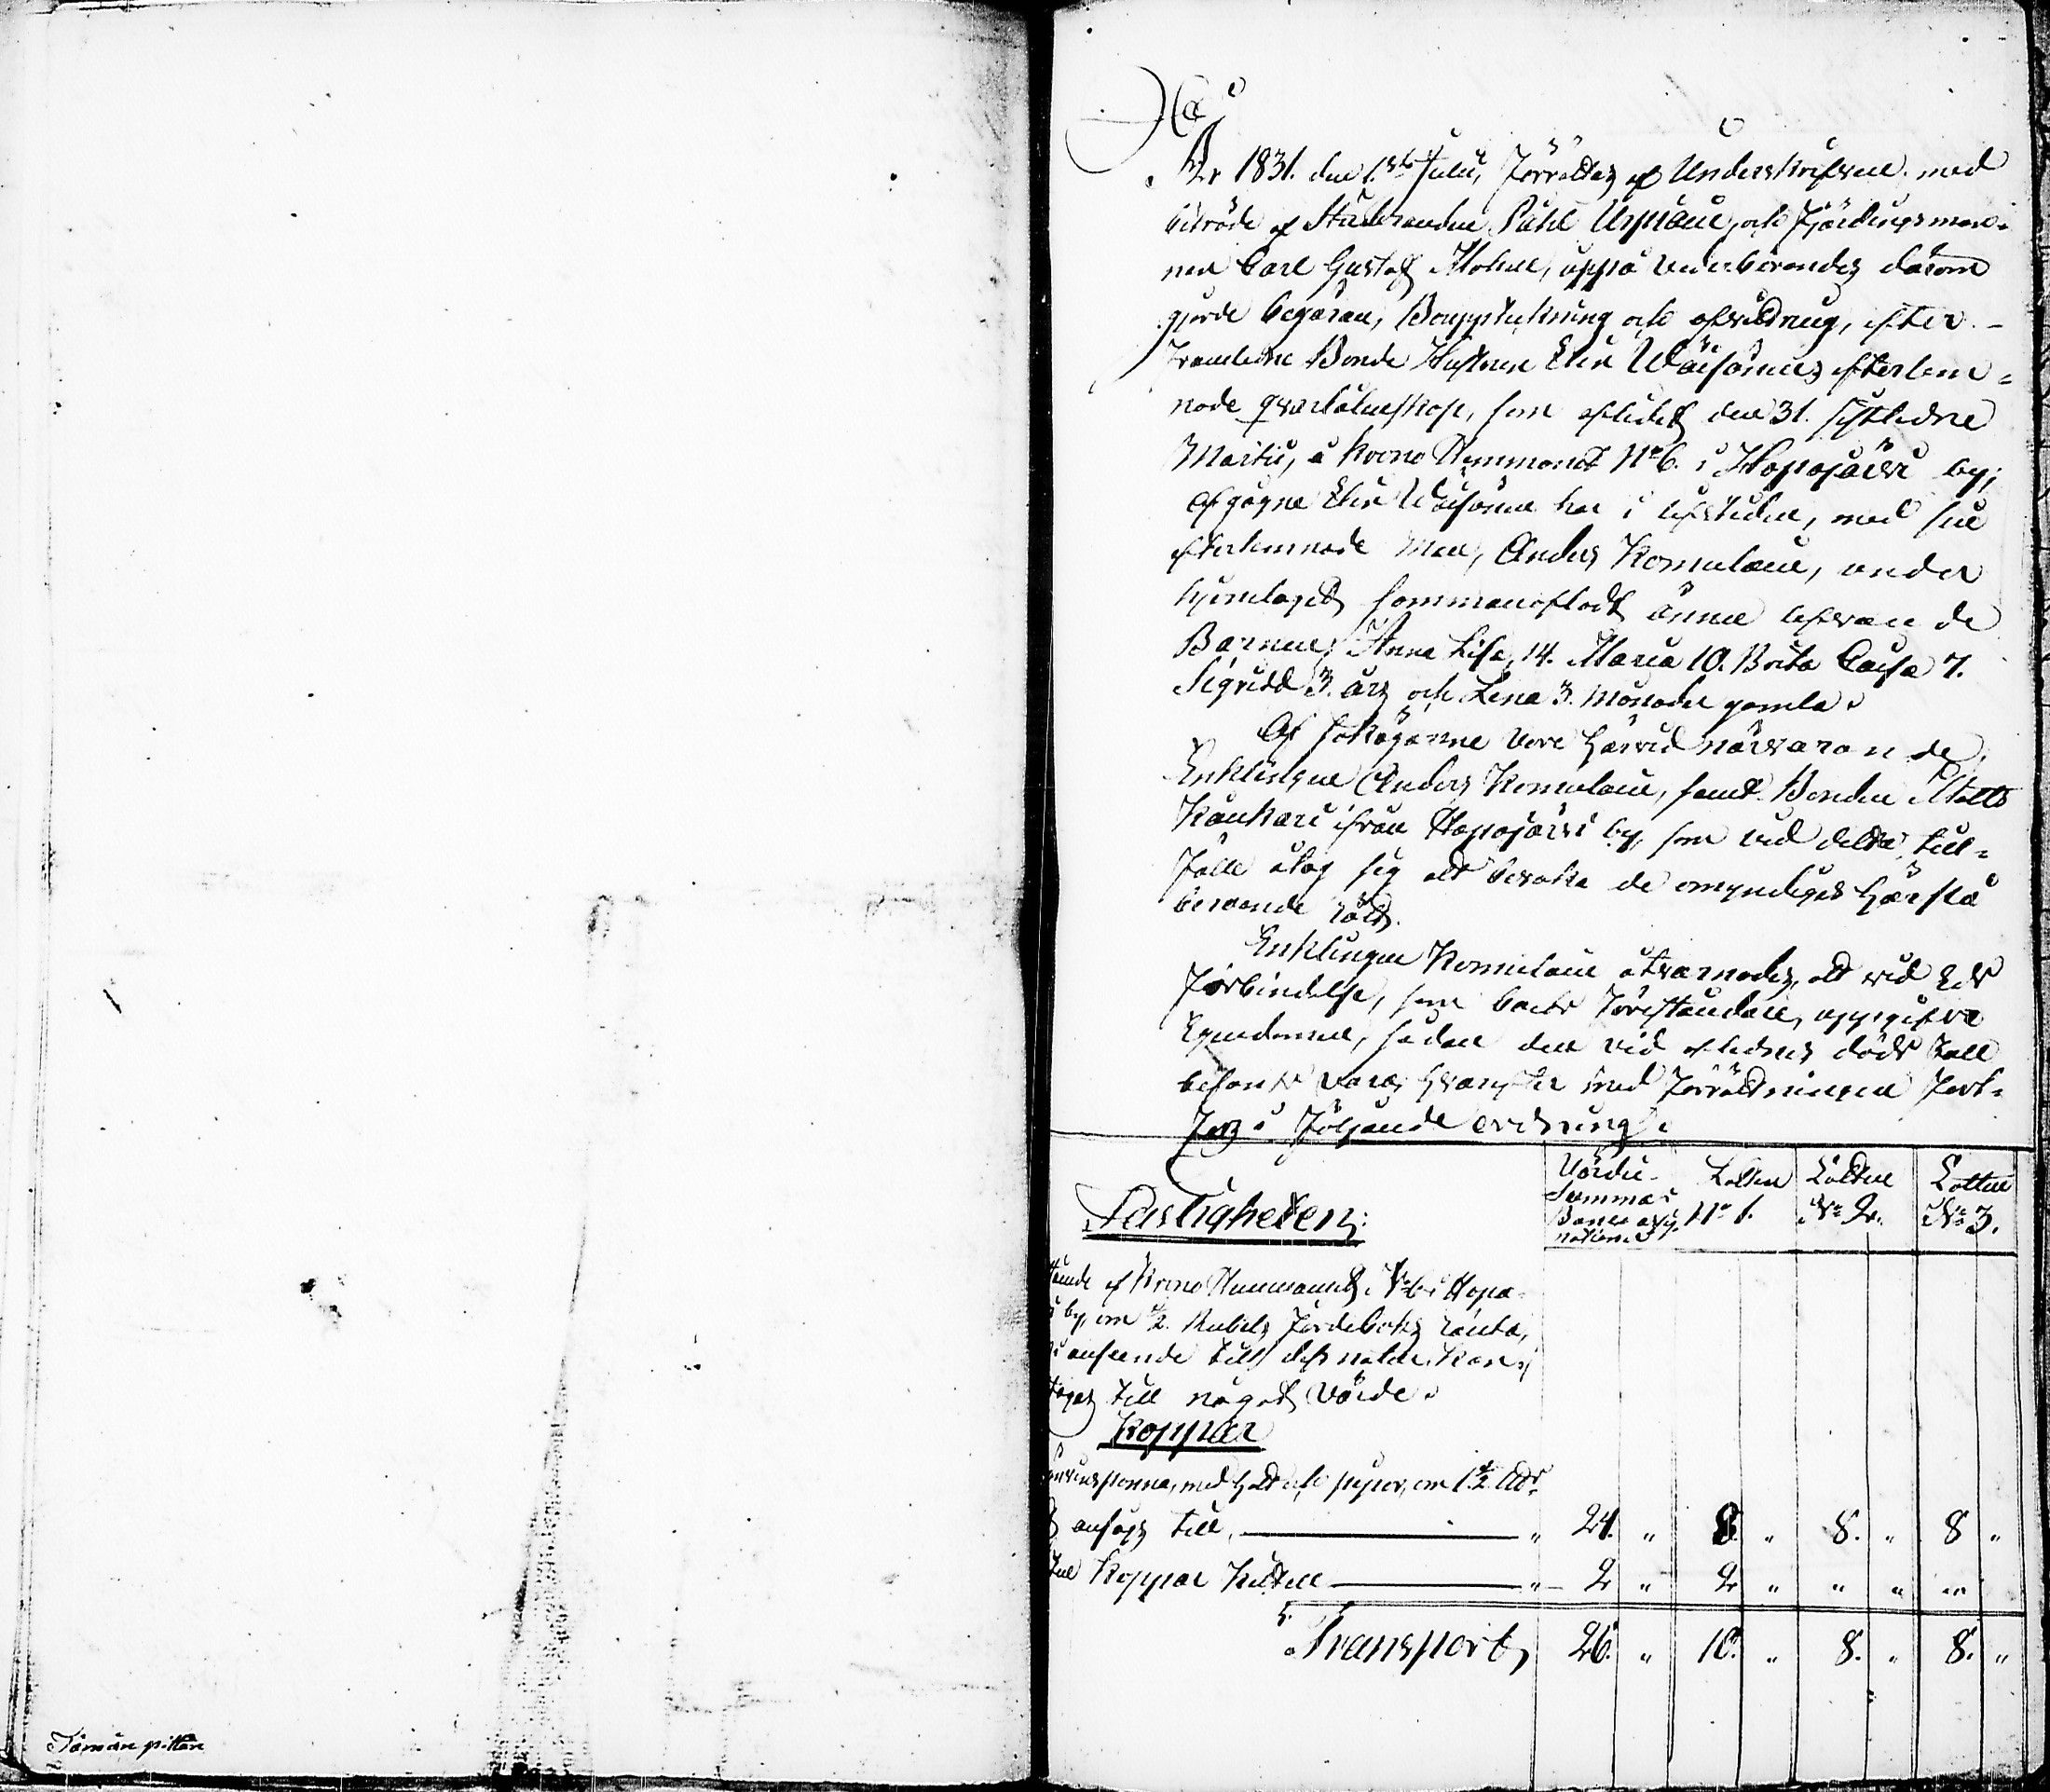 År 1831. den 1.sta Julii, Förrättades af Underskrifven. med
biträde af Studeranden Påhl Urpiain, och Fjerdingsman-
nen Carl Gustaf Molin, uppå vederbörandes därom
gjorde begäran, Bouppteckning och afvittring, efter
framledne Bonde Hustrun Elin Wäisänens efterlem-
nade qvarlåtenskap, som aflidit den 31. sistledne
Martii, å Krono Hemmanet No 6. i Hopojärvi by;
Afgågne Elin Wäisänen har i lifstiden, med sin
efterlemnade Man, Anders Komulain, under
hjonelaget sammanaflat ännu lefvande
Barnen, Anna Lisa, 14. Maria 10. Brita Caisa 7.
Sigridd 3. års och Lena 3. Månader gamla.
Af sakägarne voro härvid närvarande,
Enklingen Anders Komulain, samt Bonden Matts
Kankari ifrån Hopojärvi by, som vid detta till-
fälle åtog sig att bevaka de omyndigas härpå
beroende rätt.
Enklingen Komulain åtvarnades, att vid Eds
förbindelse, som boets Föreståndare, uppgifva
Egendomen, sådan den vid aflidnes döds fall
befants vara, hvarefter med Förrättningen fort-
fors i följande ordning.
Fastigheten:
Värde Summa i Banco assig- nationer
Lotten No 1.
Lotten No 2.
Lotten No 3.
af Krono Hemmanet No 6 i Hopo-
by, om 1/2. Rubels Jordeboks ränta,
anseende till dess natur kan ej
till något Värde.
Koppar
med hatt och pipor, om 1 1/2 Lldr.
ansågs till, " 24. " 8. " 8. " 8 "
Koppar Kittell " 2 " 2 " " " " "
Transport, 26. " 10. " 8. " 8. "
Tämän pitää